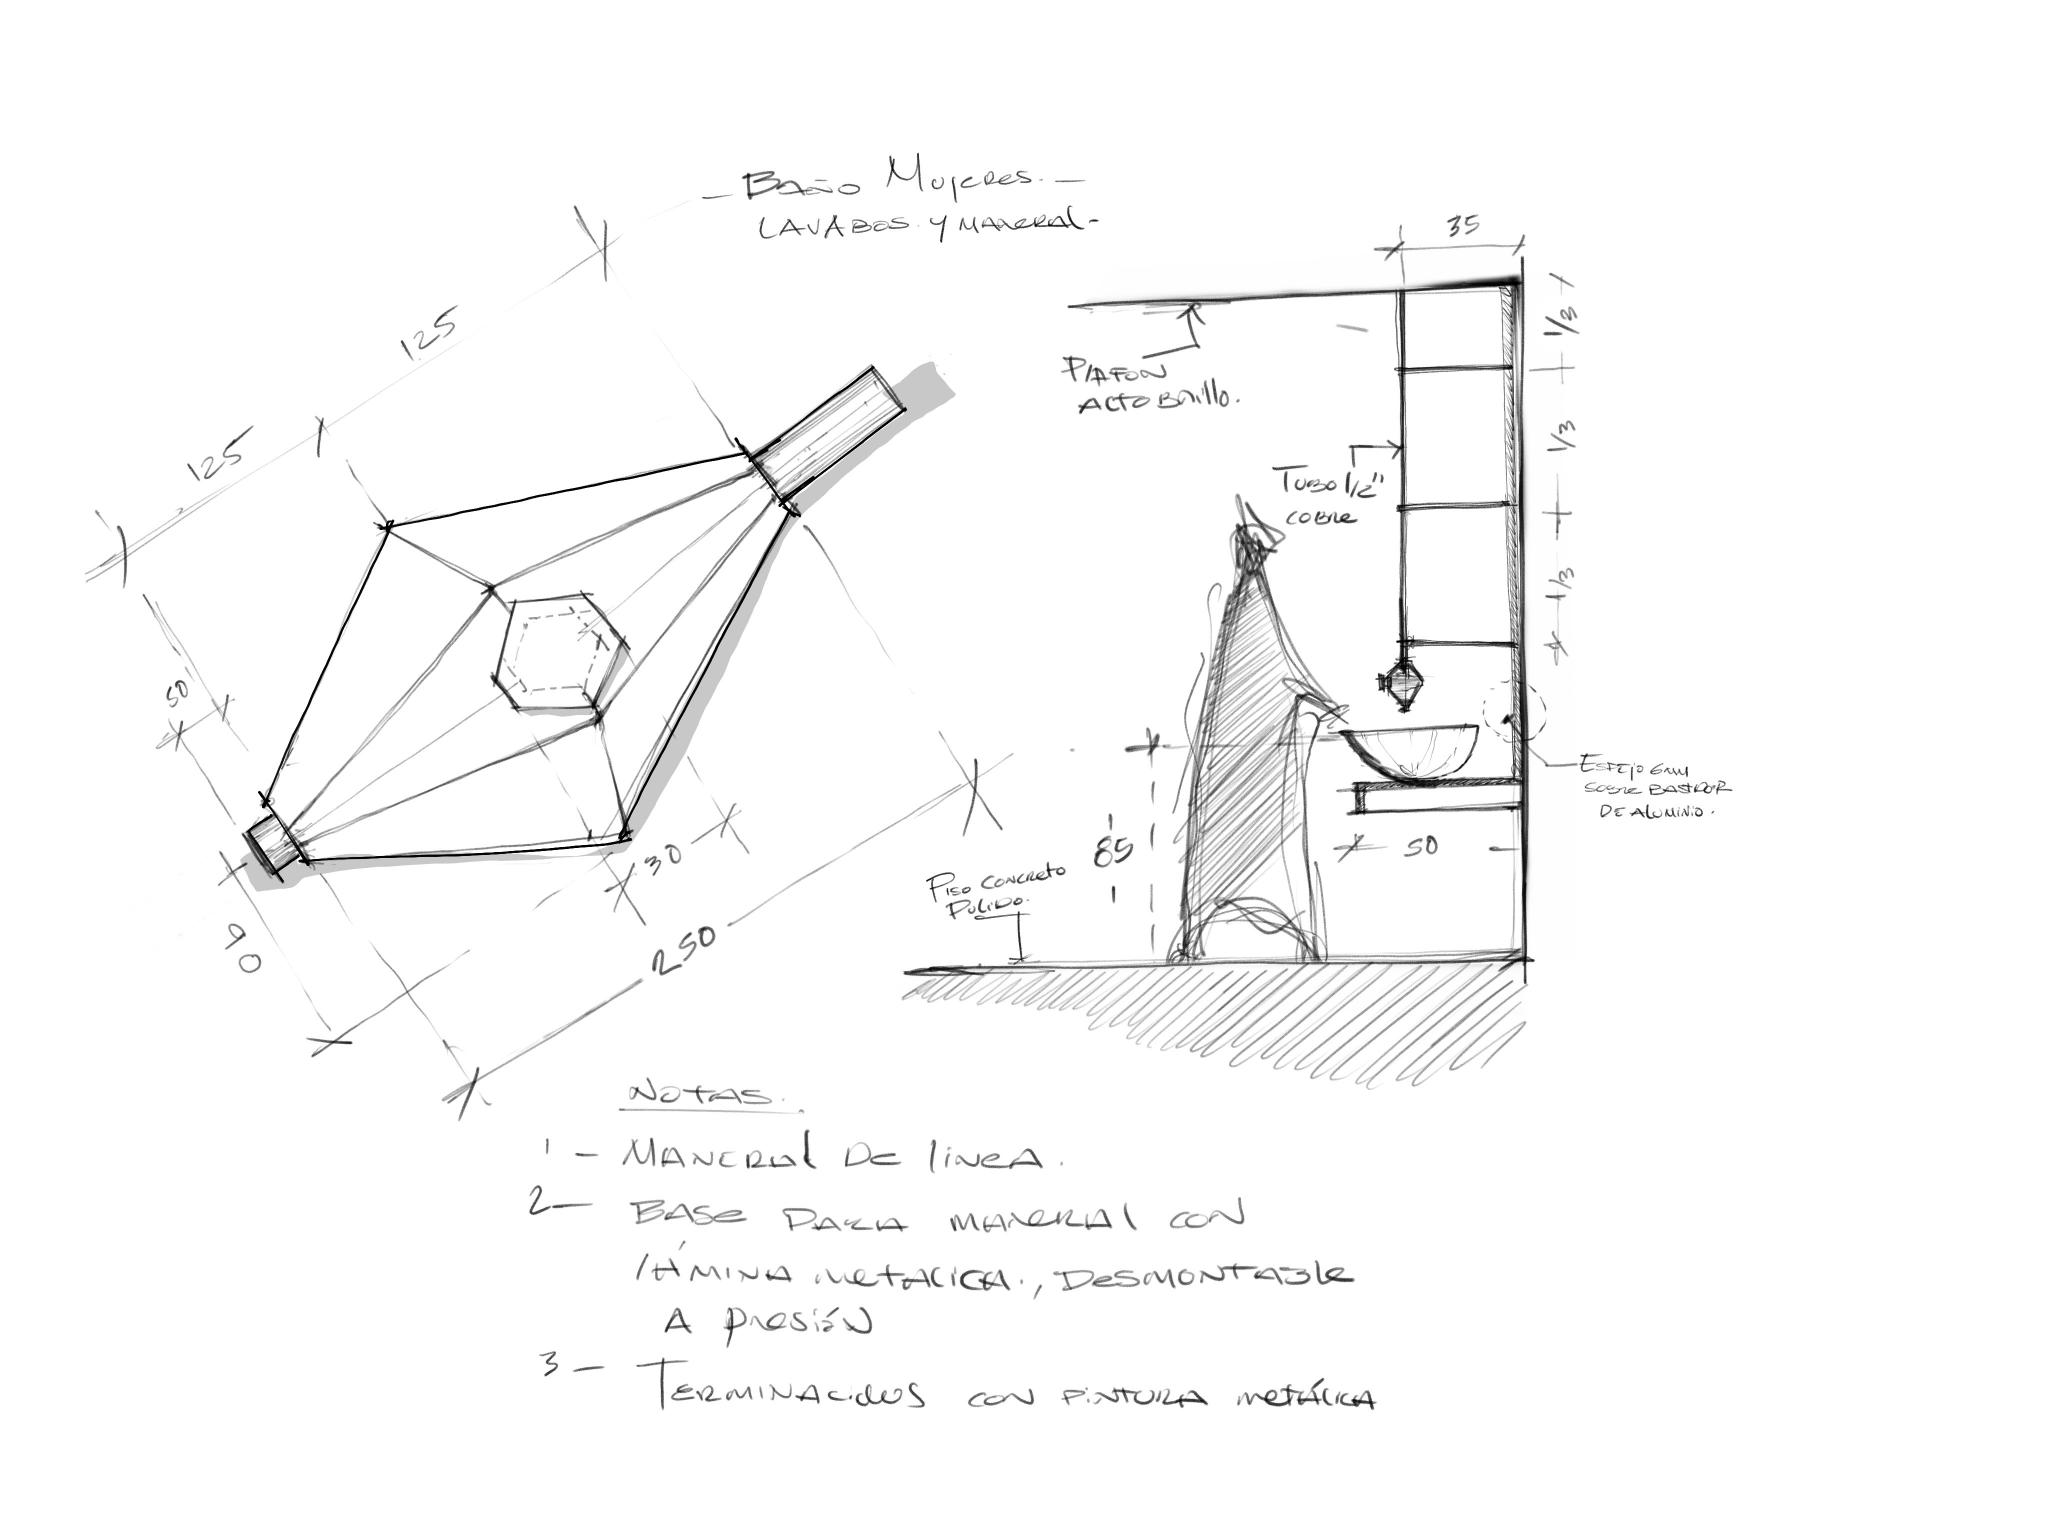 - Baño Mujeres. -
LAVABOS Y MANERAL-
125
125
50
90
30
250
35
1/3
1/3
1/3
PLAFON
ALTO BRILLO.
TUBO 1/2"
COBRE
ESPEJO 6MM
SOBRE BASTIDOR
DE ALUMINIO.
50
85
PISO CONCRETO
PULIDO.
NOTAS.
1 - MANERAL DE LINEA.
2 - BASE PARA MANERAL CON
LÁMINA METALICA., DESMONTABLE
A PRESIÓN
3 - TERMINACIDOS CON PINTURA METÁLICA